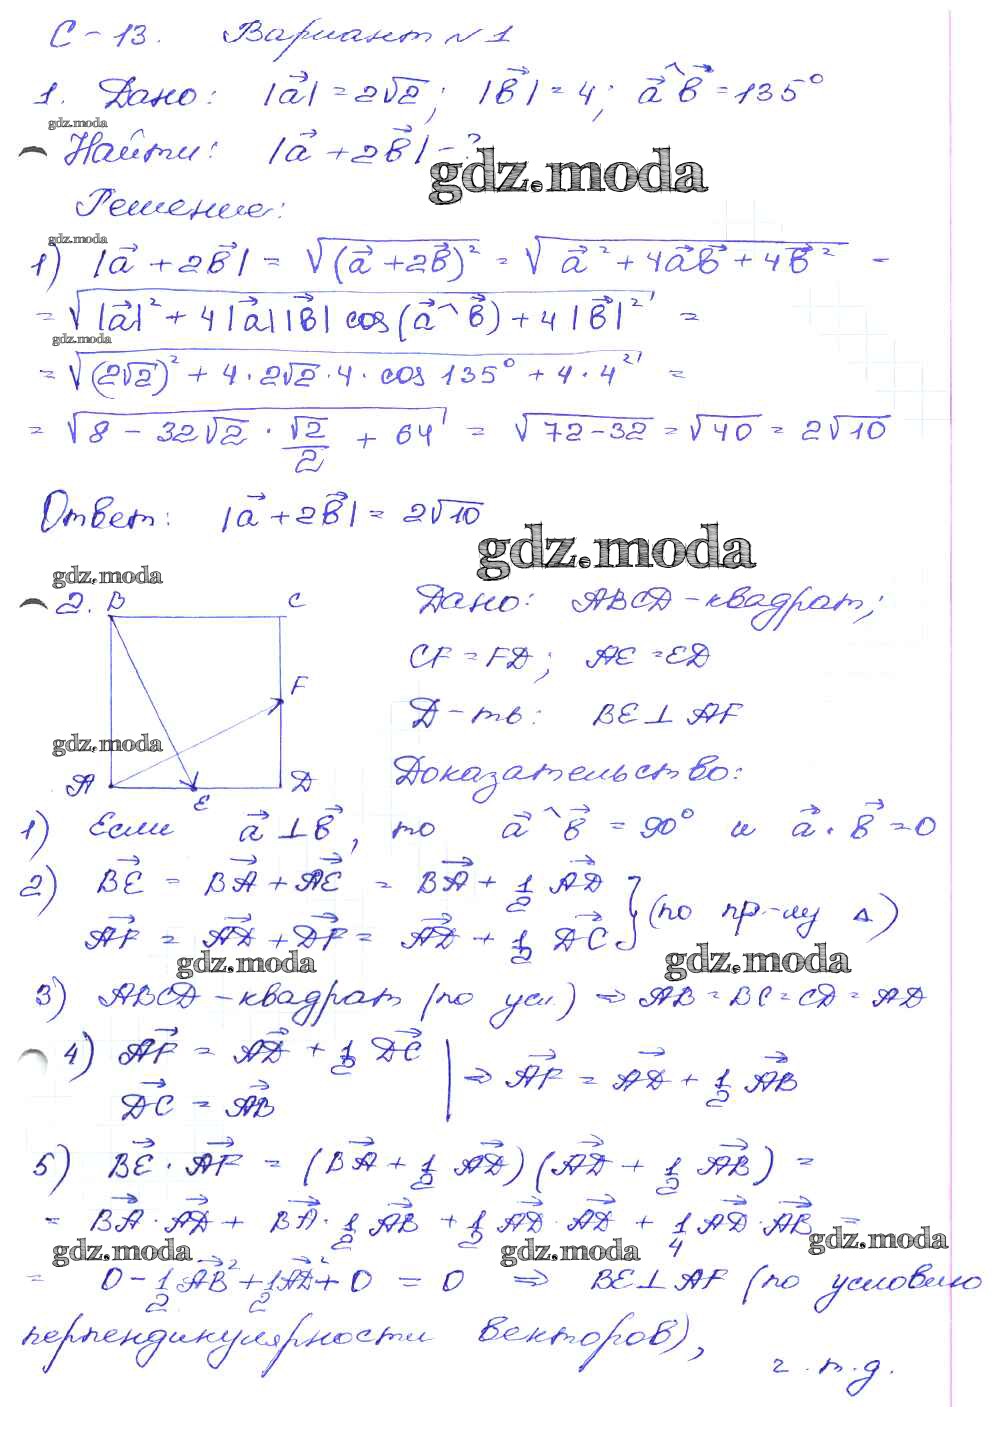 С-13. Вариант №1
1. Дано: |a⃗| = 2√2; |b⃗| = 4; a⃗^b⃗ = 135°
gdz.moda
Найти: |a⃗ + 2b⃗| - ?
gdz.moda
Решение:
gdz.moda
1) |a⃗ + 2b⃗| = √(a⃗ + 2b⃗)² = √a⃗² + 4a⃗b⃗ + 4b⃗² =
= √|a⃗|² + 4|a⃗||b⃗| cos(a⃗^b⃗) + 4|b⃗|² =
gdz.moda
= √(2√2)² + 4·2√2·4·cos 135° + 4·4² =
= √8 - 32√2 · √2/2 + 64 = √72-32 = √40 = 2√10
Ответ: |a⃗ + 2b⃗| = 2√10
gdz.moda
gdz.moda
2. B C
Дано: ABCD - квадрат;
CF = FD; AE = ED
F
Д-ть: BE ⊥ AF
gdz.moda
A E D
Доказательство:
1) Если a⃗ ⊥ b⃗, то a⃗^b⃗ = 90° и a⃗·b⃗ = 0
2) BE⃗ = BA⃗ + AE⃗ = BA⃗ + 1/2 AD⃗
AF⃗ = AD⃗ + DF⃗ = AD⃗ + 1/2 DC⃗ } (по пр-лу Δ)
gdz.moda gdz.moda
3) ABCD - квадрат (по усл) ⇒ AB = BC = CD = AD
4) AF⃗ = AD⃗ + 1/2 DC⃗
DC⃗ = AB⃗ | ⇒ AF⃗ = AD⃗ + 1/2 AB⃗
5) BE⃗ · AF⃗ = (BA⃗ + 1/2 AD⃗)(AD⃗ + 1/2 AB⃗) =
= BA⃗·AD⃗ + BA⃗·1/2 AB⃗ + 1/2 AD⃗·AD⃗ + 1/4 AD⃗·AB⃗ =
gdz.moda gdz.moda gdz.moda
= 0 - 1/2 AB⃗² + 1/2 AD⃗² + 0 = 0 ⇒ BE ⊥ AF (по условию
перпендикулярности векторов),
ч.т.д.